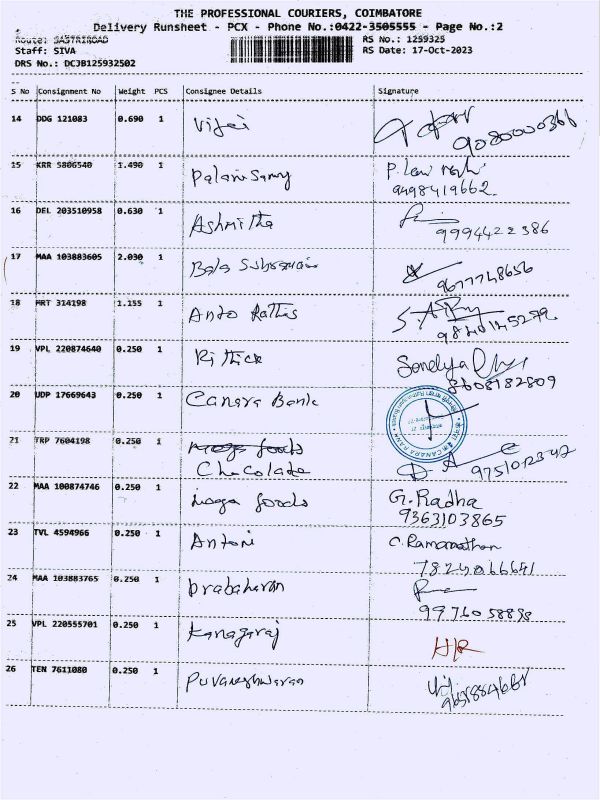 THE PROFESSIONAL COURIERS, COIMBATORE
Delivery Runsheet - PCX - Phone No.:0422-3505555 - Page No.:2
Route: SASTRIROAD
RS No.: 1259325
Staff: SIVA
RS Date: 17-Oct-2023
DRS No.: DCJB125932502
S No Consignment No Weight PCS Consignee Details Signature
14 DDG 121083 0.690 1 Vijai
9080000366
15 KRR 5806540 1.490 1 Palanisamy P.
9498419662
16 DEL 203510958 0.630 1 Ashmitha
9994422386
17 MAA 103883605 2.030 1 Bala
9677748656
18 MRT 314198 1.155 1 Anto
19 VPL 220874640 0.250 1 Rithick
8608182809
20 UDP 17669643 0.250 1 Canara Bank
CANARA BANK
21 TRP 7604198 0.250 1 naga foods
Chocolate
22 MAA 100874746 0.250 1 naga foods G. Radha
9363103865
23 TVL 4594966 0.250 1 Antoni C. Ramanathan
24 MAA 103883765 0.250 1 prabaharan
9976058898
25 VPL 220555701 0.250 1 Kanagaraj
26 TEN 7611080 0.250 1 Puvaneshwaran